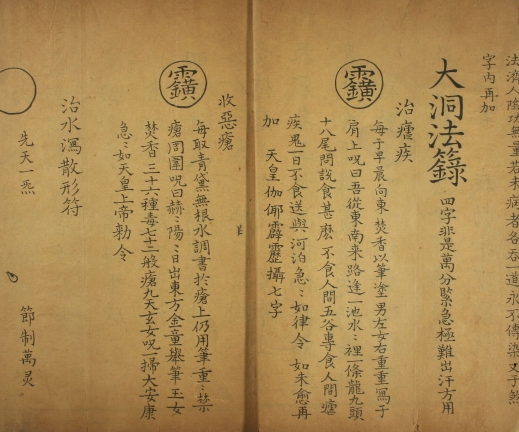 法濟人陰功無量若未病者各吞一道永不傳染又于煞
字內再加
大洞法籙 四字非是萬分緊急極難出汗方用
治瘧疾
每于早晨向東焚香以筆塗男左女右重重寫于
肩上呪曰吾從東南來路逢一池水〻裡一條龍九頭
十八尾問說食甚麽不食人間五谷專食人間瘧
疾鬼一日不食送與河泊急〻如律令 如未愈再
加 天皇伽倻霹靂攝七字
收惡瘡
每取青黛無根水調書於瘡上仍用筆重〻禁
瘡周圍呪曰赫〻陽〻日出東方金童舉筆玉女
焚香三十六種毒七十二般瘡九天玄女呪一掃大安康
急〻如天皇上帝勅令
治水瀉散形符
先天一炁 節制萬灵